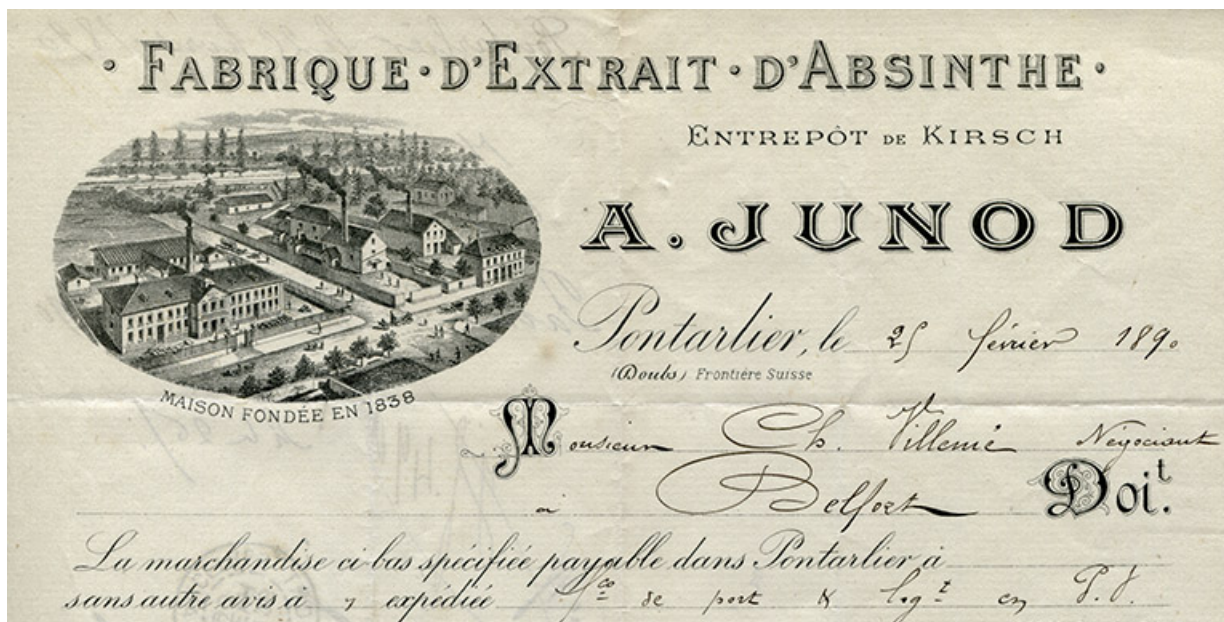 · FABRIQUE · D'EXTRAIT · D'ABSINTHE ·
ENTREPÔT DE KIRSCH
A. JUNOD
MAISON FONDÉE EN 1838
Pontarlier, le 25 février 1890
(Doubs) Frontière Suisse
Monsieur Ch. Négociant
à Belfort Doit.
La marchandise ci bas spécifiée payable dans Pontarlier à
sans autre avis à expédiée fco de port & logt en P. V.